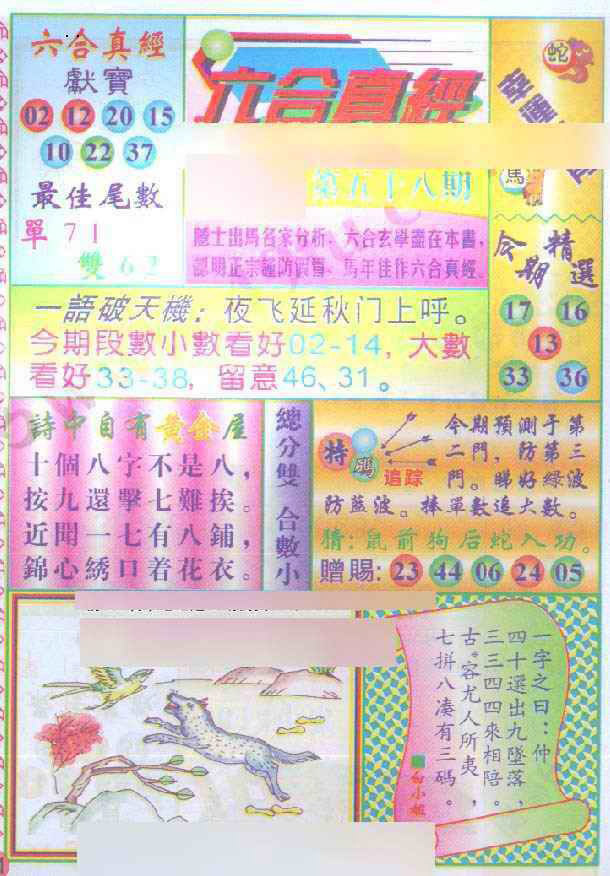 六合真經
獻寶
02 12 20 15
10 22 37
最佳尾數
單 71
雙 62
六合真經
第五十八期
隱士出馬名家分析、六合玄學盡在本書，
認明正宗謹防假冒、馬年佳作六合真經。
蛇
馬
今期精選
17 16
13
33 36
一語破天機：夜飞延秋门上呼。
今期段數小數看好02-14，大數
看好33-38，留意46、31。
詩中自有黃金屋
十個八字不是八，
按九還擊七難挨。
近聞一七有八鋪，
錦心綉口着花衣。
總分雙 合數小
特碼
追踪
今期預測于第
二門，防第三
門。睇好綠波
防藍波。捧單數追大數。
猜：鼠前狗后蛇入功。
赠賜：23 44 06 24 05
一字之曰：仲
四十選出九墜落，
三三四四來相陪。
古。客尤人所夷，
七拼八凑有三码。
白小姐